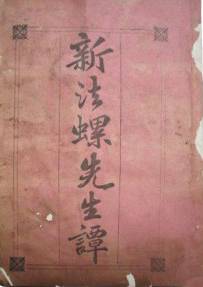 新法螺先生譚